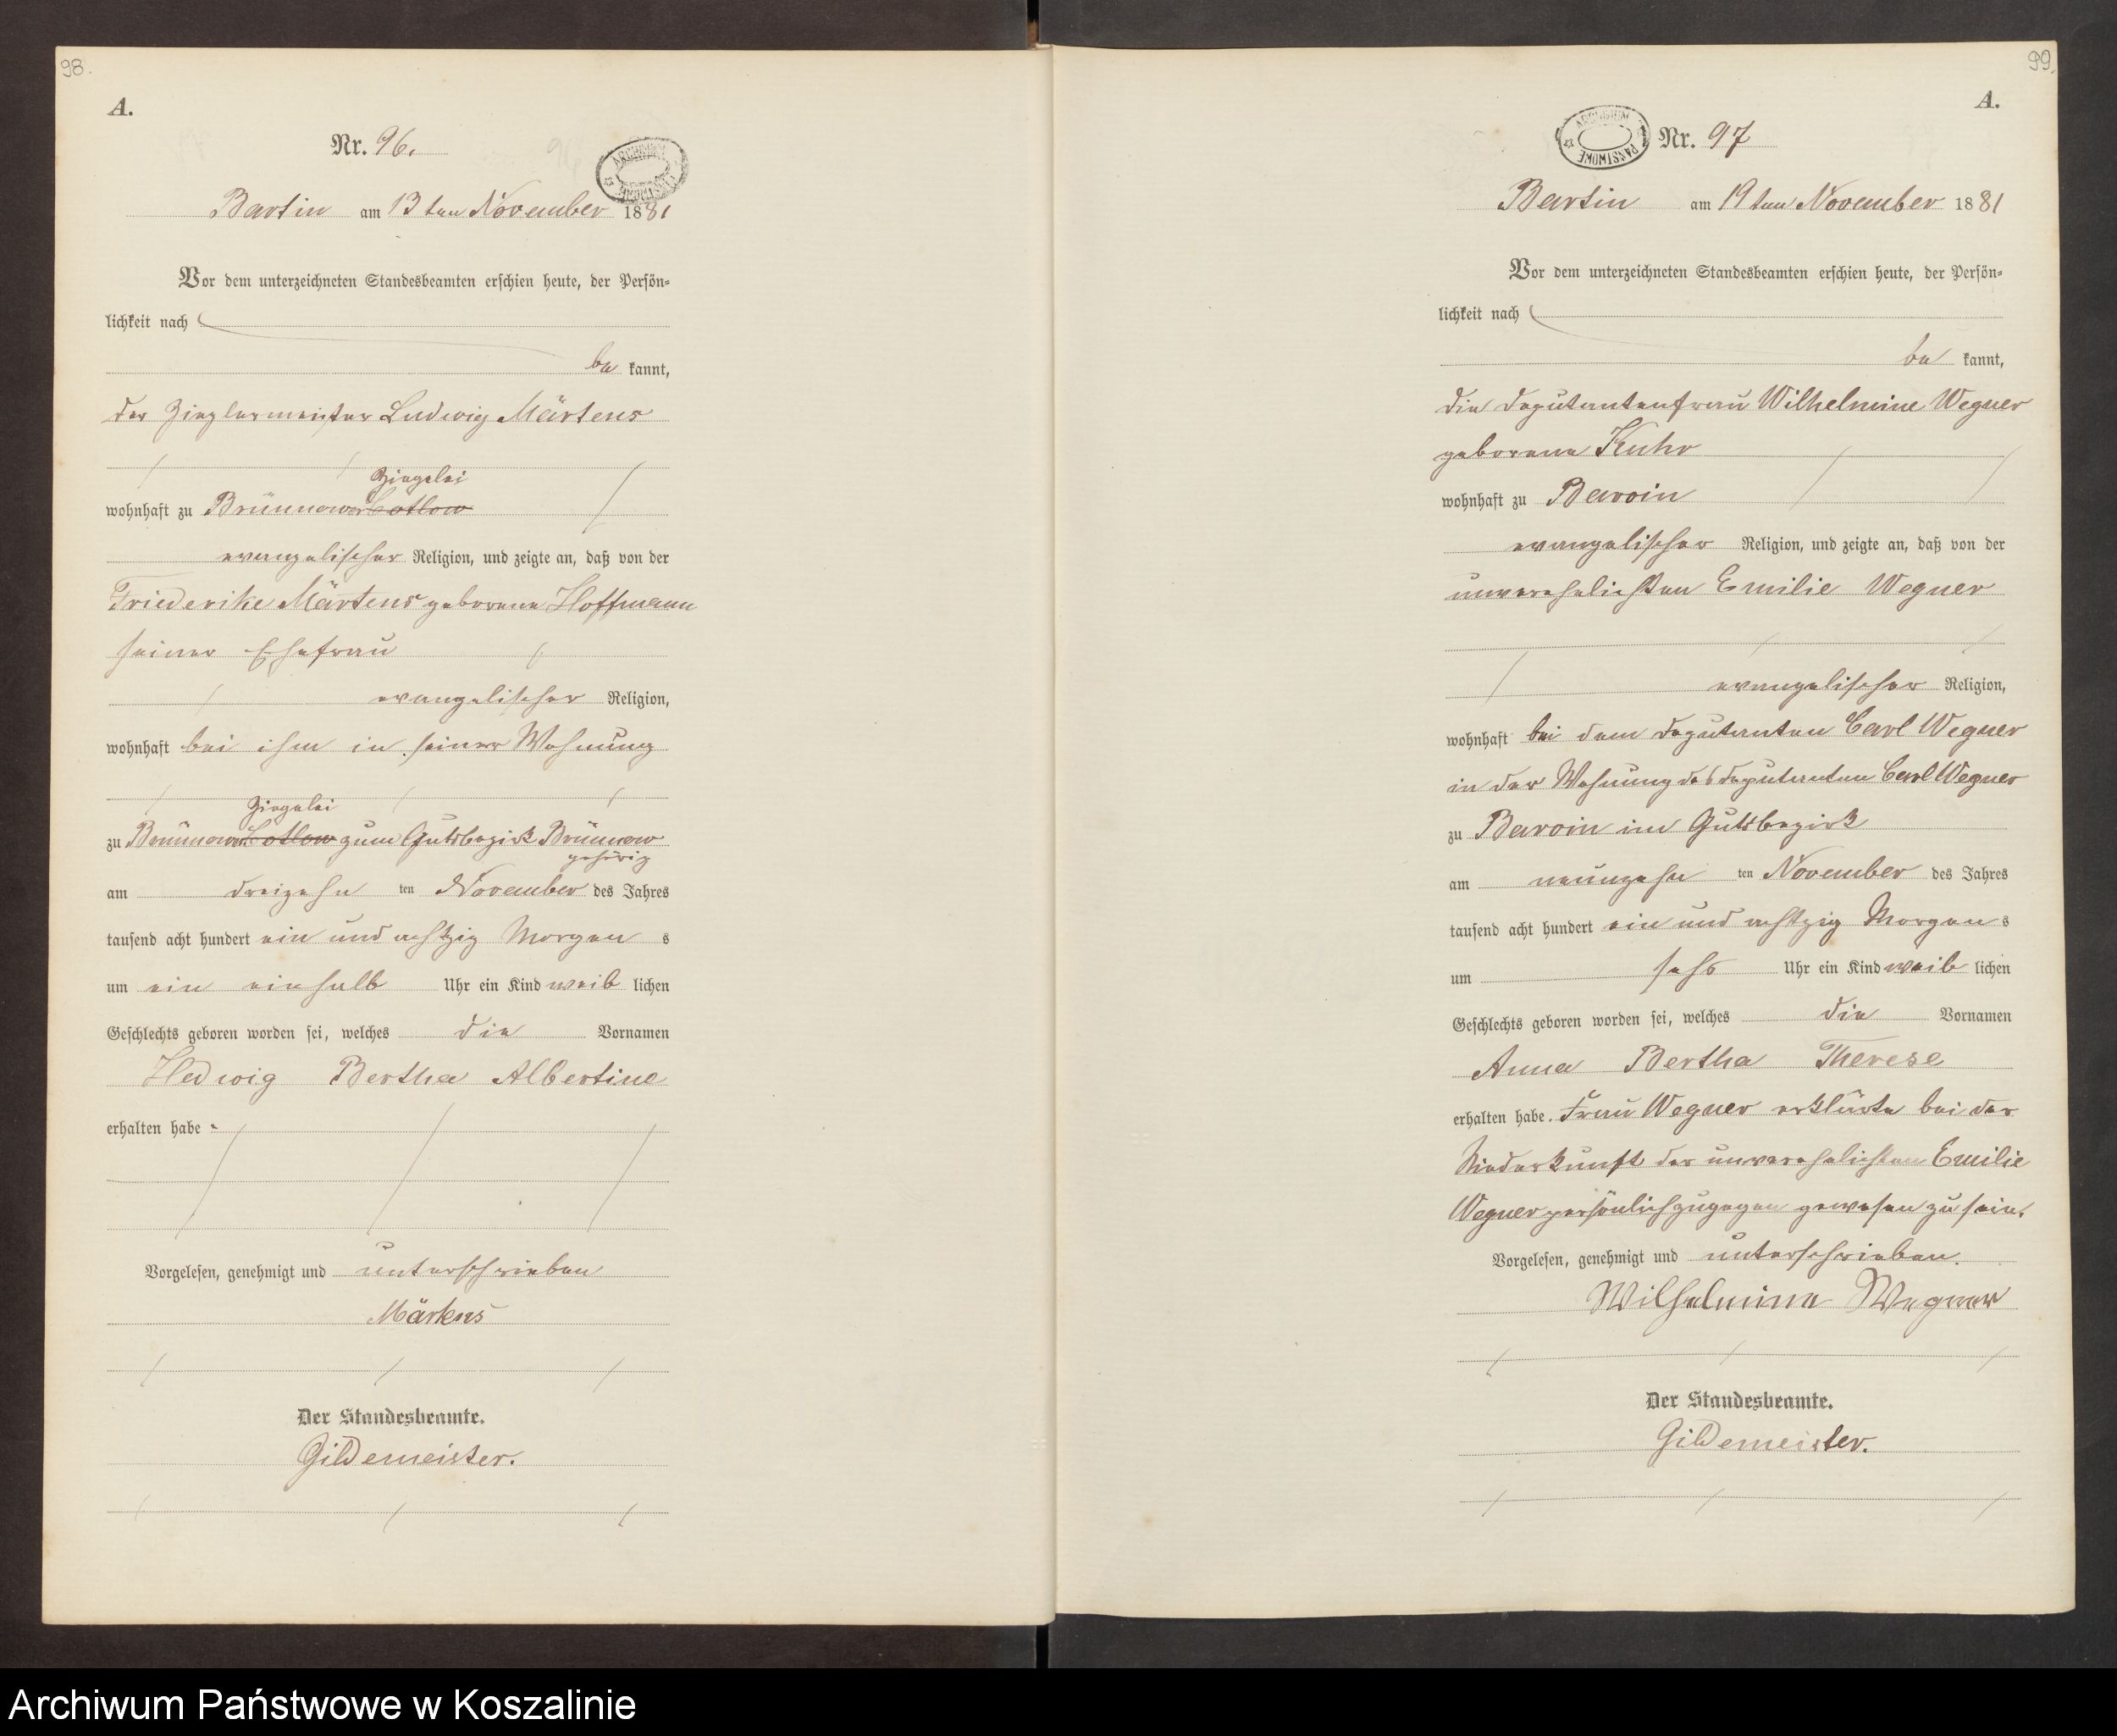 98.
A.
Nr. 96.
ARCHIWUM PAŃSTWOWE
Bartin am 13ten November 1881
Vor dem unterzeichneten Standesbeamten erschien heute, der Persön-
lichkeit nach
be kannt,
der Zieglermeister Ludwig Märtens
Ziegelei
wohnhaft zu Brünnower Cotlow
evangelischer Religion, und zeigte an, daß von der
Friederike Märtens geborene Hoffmann
seiner Ehefrau
evangelischer Religion,
wohnhaft bei ihm in seiner Wohnung
Ziegelei
zu Brünnower Cotlow zum Gutsbezirk Brünnow
gehörig
am dreizehn ten November des Jahres
tausend acht hundert ein und achtzig Morgen s
um ein einhalb Uhr ein Kind weib lichen
Geschlechts geboren worden sei, welches die Vornamen
Hedwig Bertha Albertine
erhalten habe.
Vorgelesen, genehmigt und unterschrieben
Märtens
Der Standesbeamte.
Gildemeister.
99.
A.
ARCHIWUM PAŃSTWOWE
Nr. 97
Bartin am 19ten November 1881
Vor dem unterzeichneten Standesbeamten erschien heute, der Persön-
lichkeit nach
be kannt,
die Deputantenfrau Wilhelmine Wegner
geborene Kuhr
wohnhaft zu Barvin
evangelischer Religion, und zeigte an, daß von der
unverehelichten Emilie Wegner
evangelischer Religion,
wohnhaft bei dem Deputanten Carl Wegner
in der Wohnung des Deputanten Carl Wegner
zu Barvin im Gutsbezirk
am neunzehn ten November des Jahres
tausend acht hundert ein und achtzig Morgen s
um sechs Uhr ein Kind weib lichen
Geschlechts geboren worden sei, welches die Vornamen
Anna Bertha Therese
erhalten habe. Frau Wegner erklärte bei der
Niederkunft der unverehelichten Emilie
Wegner persönlich zugegen gewesen zu sein.
Vorgelesen, genehmigt und unterschrieben.
Wilhelmine Wegner
Der Standesbeamte.
Gildemeister.
Archiwum Państwowe w Koszalinie